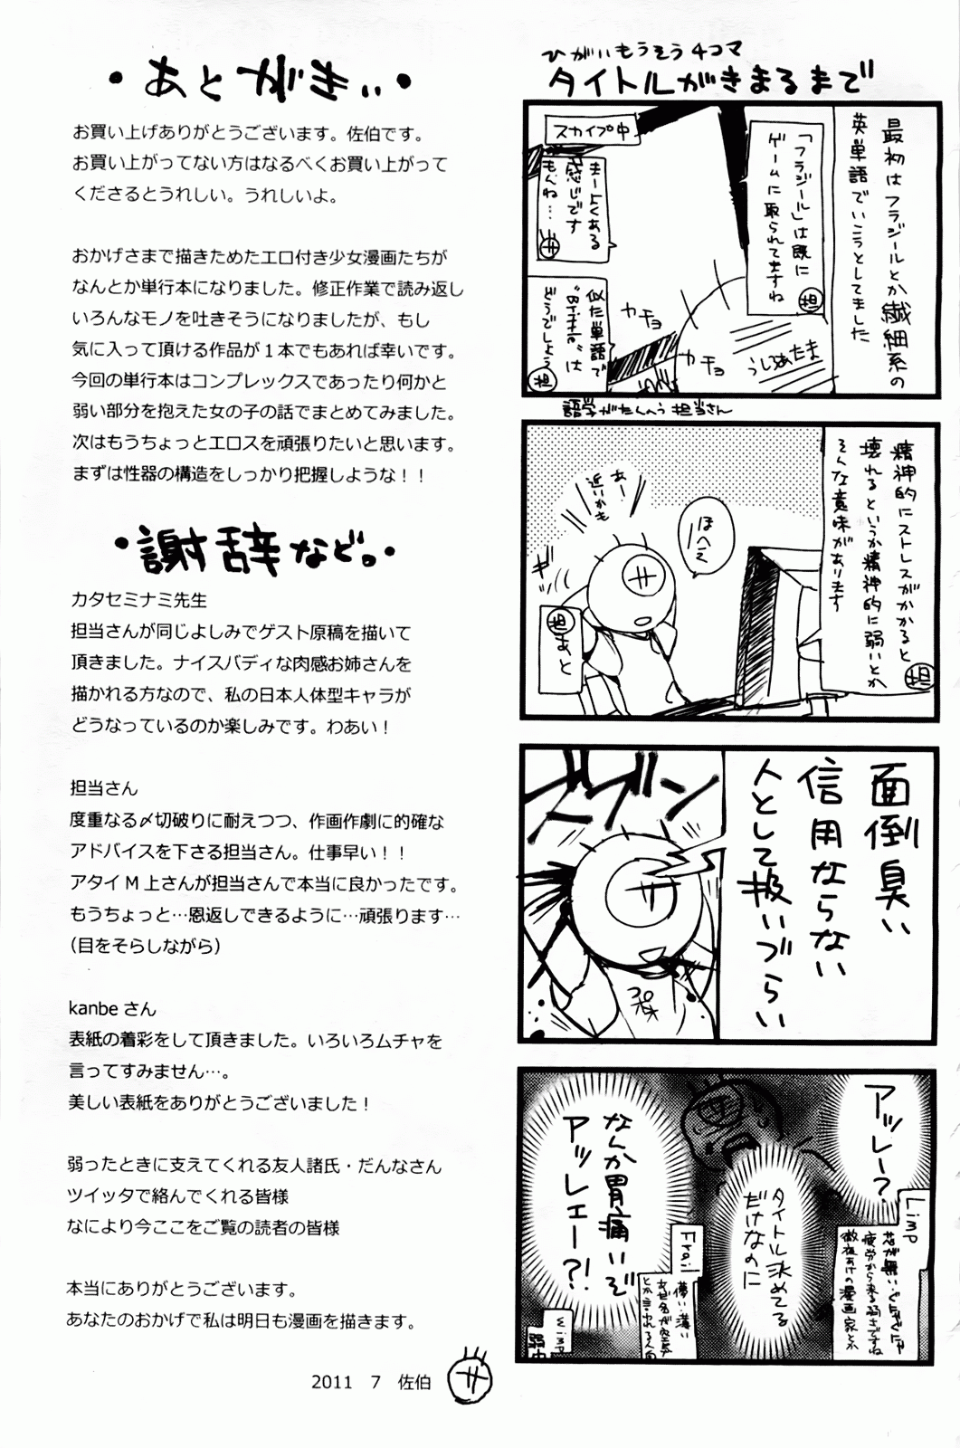 ・あとがきぃ・
お買い上げありがとうございます。佐伯です。
お買い上がってない方はなるべくお買い上がって
くださるとうれしい。うれしいよ。
おかげさまで描きためたエロ付き少女漫画たちが
なんとか単行本になりました。修正作業で読み返し
いろんなモノを吐きそうになりましたが、もし
気に入って頂ける作品が1本でもあれば幸いです。
今回の単行本はコンプレックスであったり何かと
弱い部分を抱えた女の子の話でまとめてみました。
次はもうちょっとエロスを頑張りたいと思います。
まずは性器の構造をしっかり把握しような！！
・謝辞など。・
カタセミナミ先生
担当さんが同じよしみでゲスト原稿を描いて
頂きました。ナイスバディな肉感お姉さんを
描かれる方なので、私の日本人体型キャラが
どうなっているのか楽しみです。わあい！
担当さん
度重なる〆切破りに耐えつつ、作画作劇に的確な
アドバイスを下さる担当さん。仕事早い！！
アタイM上さんが担当さんで本当に良かったです。
もうちょっと…恩返しできるように…頑張ります…
（目をそらしながら）
kanbeさん
表紙の着彩をして頂きました。いろいろムチャを
言ってすみません…。
美しい表紙をありがとうございました！
弱ったときに支えてくれる友人諸氏・だんなさん
ツイッタで絡んでくれる皆様
なにより今ここをご覧の読者の皆様
本当にありがとうございます。
あなたのおかげで私は明日も漫画を描きます。
2011 7 佐伯
サ
ひがいもうそう4コマ
タイトルがきまるまで
最初はフラジールとか繊細系の
英単語でいこうとしてました
「フラジール」は既に
ゲームに取られてますね
担
スカイプ中
まーよくある
感じです
もんね…
サ
似た単語で
"Brittle"は
どうでしょう
担
カチョ
カチョ
うしろあたま
語学がたんのう担当さん
精神的にストレスがかかると
壊れるというか精神的に弱いとか
そんな意味があります
担
ほへえ
あー
近いかも
サ
担
あと
面倒臭い
信用ならない
人として扱いづらい
ズズン
サ
アッレー？
Limp
タイトル決めてる
だけなのに
Frail
なんか胃痛いぞ
アッレェー？！
wimp